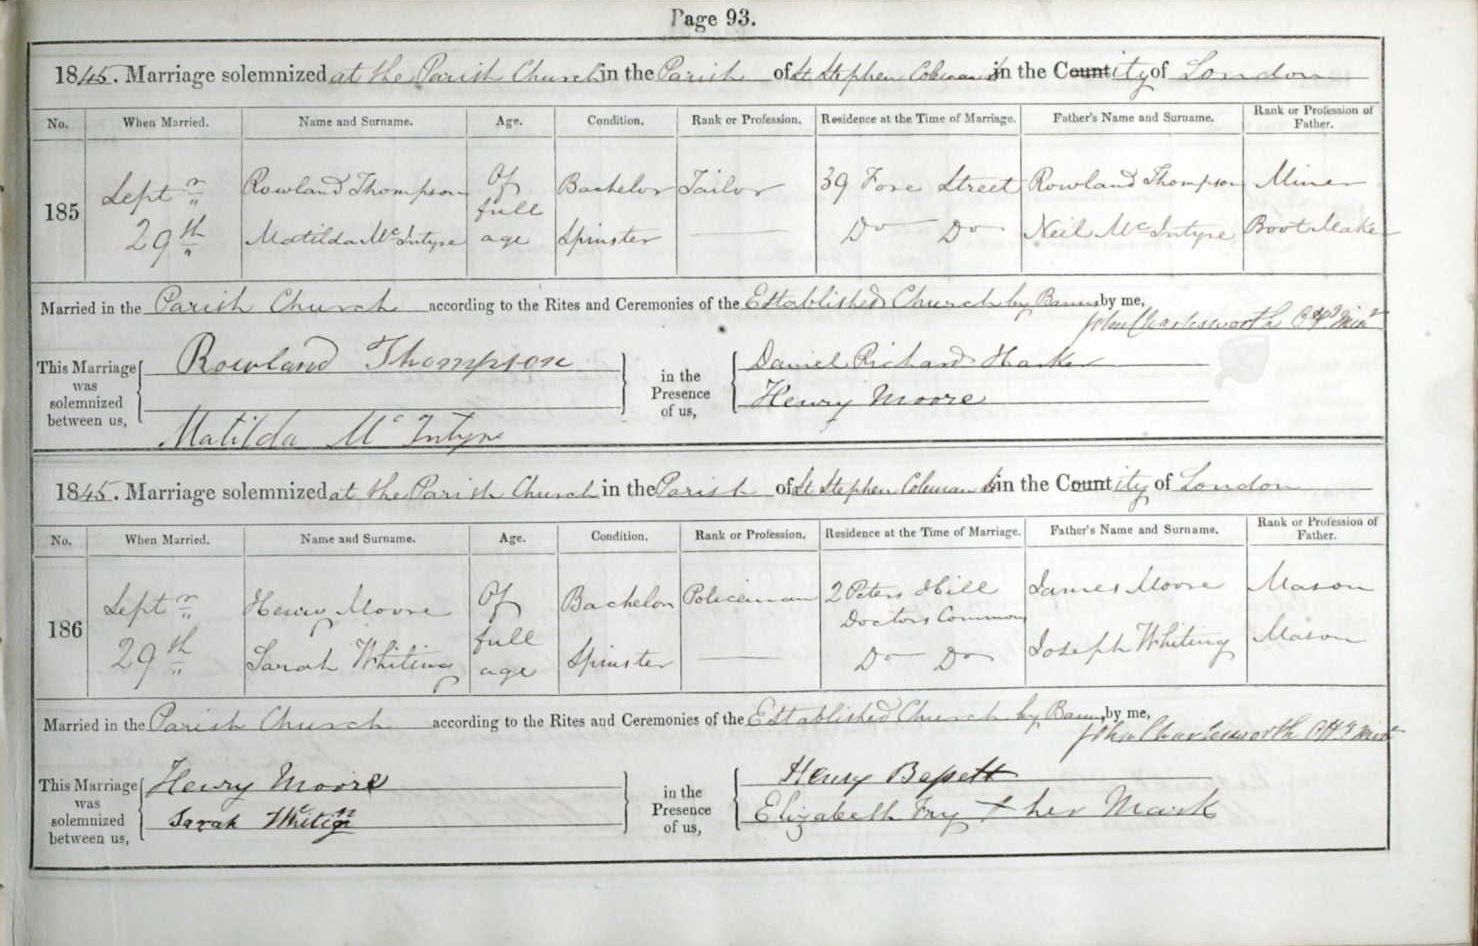 Page 93.
1845. Marriage solemnized at the Parish Church in the Parish of St Stephen Coleman St in the County ity of London
No. When Married. Name and Surname. Age. Condition. Rank or Profession. Residence at the Time of Marriage. Father's Name and Surname. Rank or Profession of Father.
185 Septr Rowland Thompson Of full Bachelor Tailor 39 Fore Street Rowland Thompson Miner
29th Matilda McIntyre age Spinster Do Do Neil McIntyre Boot Maker
Married in the Parish Church according to the Rites and Ceremonies of the Established Church by Banns by me,
John Charlesworth Offg Minr
This Marriage was solemnized between us, Rowland Thompson in the Presence of us, Daniel Richard Harker
Matilda McIntyre Henry Moore
1845. Marriage solemnized at the Parish Church in the Parish of St Stephen Coleman St in the County ity of London
No. When Married. Name and Surname. Age. Condition. Rank or Profession. Residence at the Time of Marriage. Father's Name and Surname. Rank or Profession of Father.
186 Septr Henry Moore Of full Bachelor Policeman 2 Peters Hill Doctors Commons James Moore Mason
29th Sarah Whiting age Spinster Do Do Joseph Whiting Mason
Married in the Parish Church according to the Rites and Ceremonies of the Established Church by Banns by me,
John Charlesworth Offg Minr
This Marriage was solemnized between us, Henry Moore in the Presence of us, Henry Bassett
Sarah Elizabeth Fry + her Mark